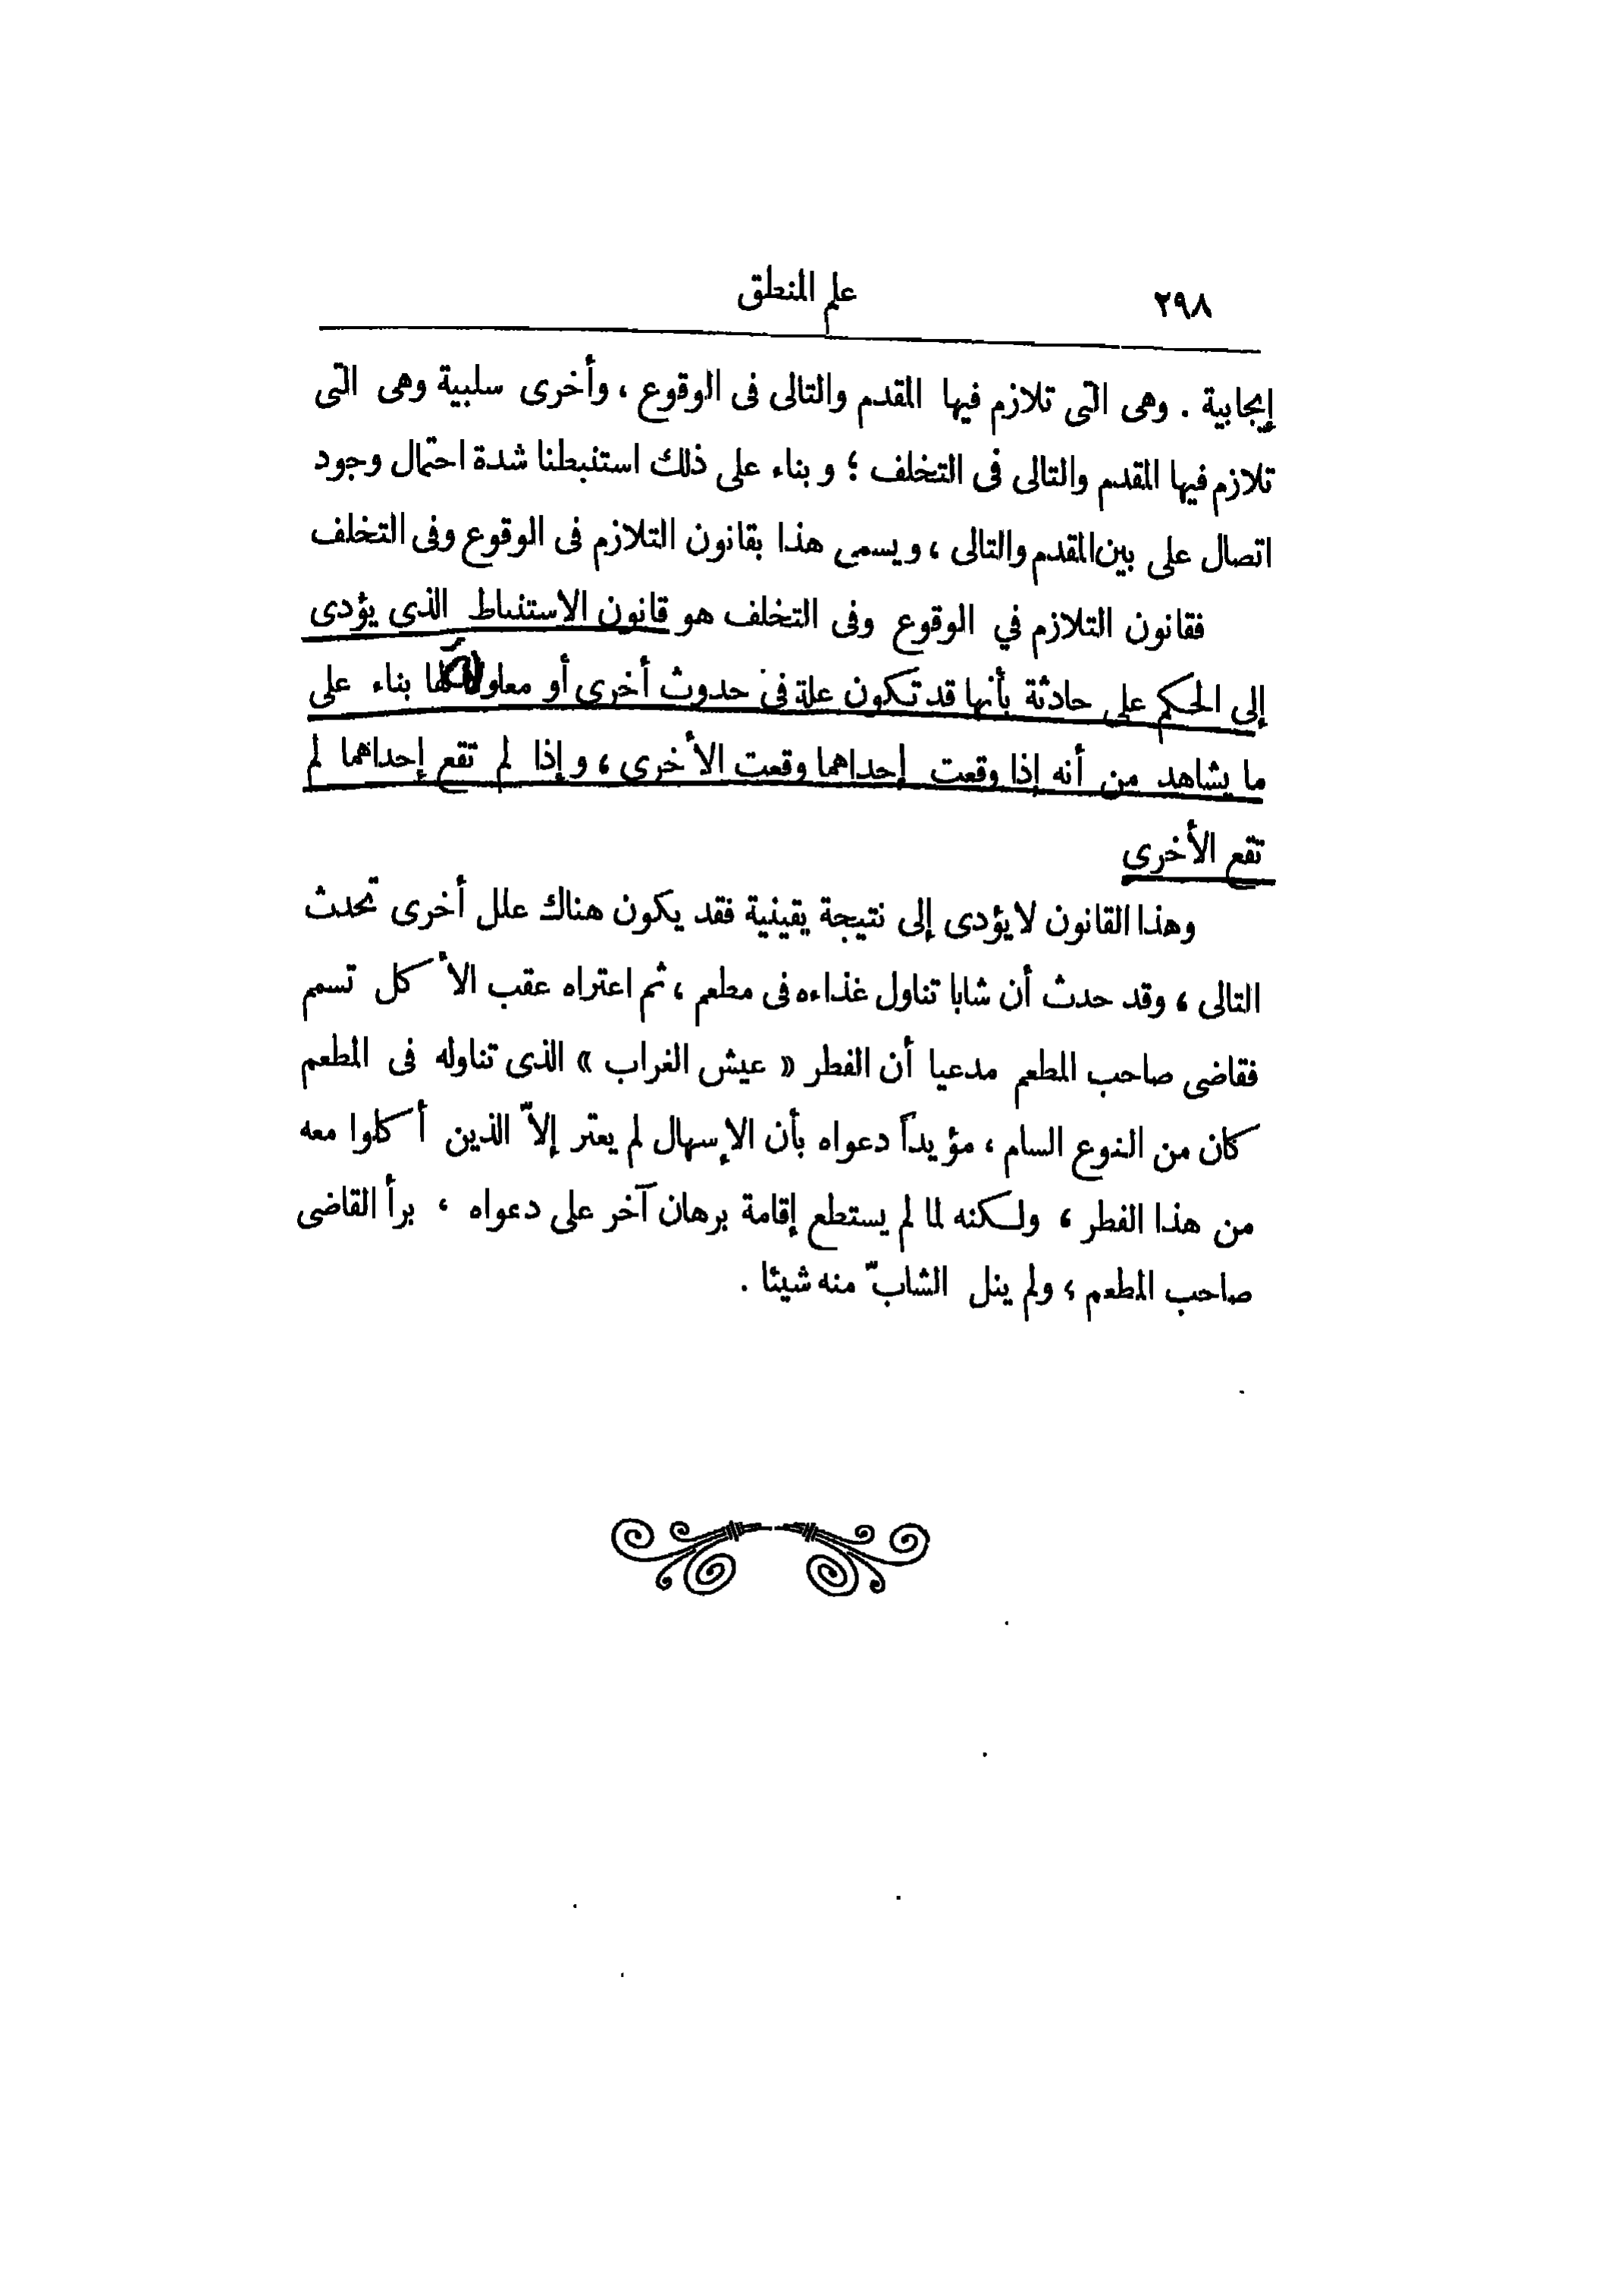 ٢٩٨
علم المنطق
إيجابية . وهى التى تلازم فيها المقدم والتالى فى الوقوع ، وأخرى سلبية وهى التى
تلازم فيها المقدم والتالى فى التخلف ؛ وبناء على ذلك استنبطنا شدة احتمال وجود
اتصال على بين المقدم والتالى ، ويسمى هذا بقانون التلازم فى الوقوع وفى التخلف
فقانون التلازم في الوقوع وفى التخلف هو قانون الاستنباط الذى يؤدى
إلى الحكم على حادثة بأنها قد تكون علة فى حدوث أخرى أو لها بناء على
ما يشاهد من أنه إذا وقعت إحداهما وقعت الأخرى ، وإذا لم تقع إحداهما لم
تقع الأخرى
وهذا القانون لا يؤدى إلى نتيجة يقينية فقد يكون هناك علل أخرى تحدث
التالى ، وقد حدث أن شابا تناول غذاءه فى مطعم ، ثم اعتراه عقب الأكل تسمم
فقاضى صاحب المطعم مدعيا أن الفطر « عيش الغراب » الذى تناوله فى المطعم
كان من النوع السام ، مؤيداً دعواه بأن الإسهال لم يعتر إلاّ الذين أكلوا معه
من هذا الفطر ، ولكنه لما لم يستطع إقامة برهان آخر على دعواه ، برأ القاضى
صاحب المطعم ، ولم ينل الشابّ منه شيئا .